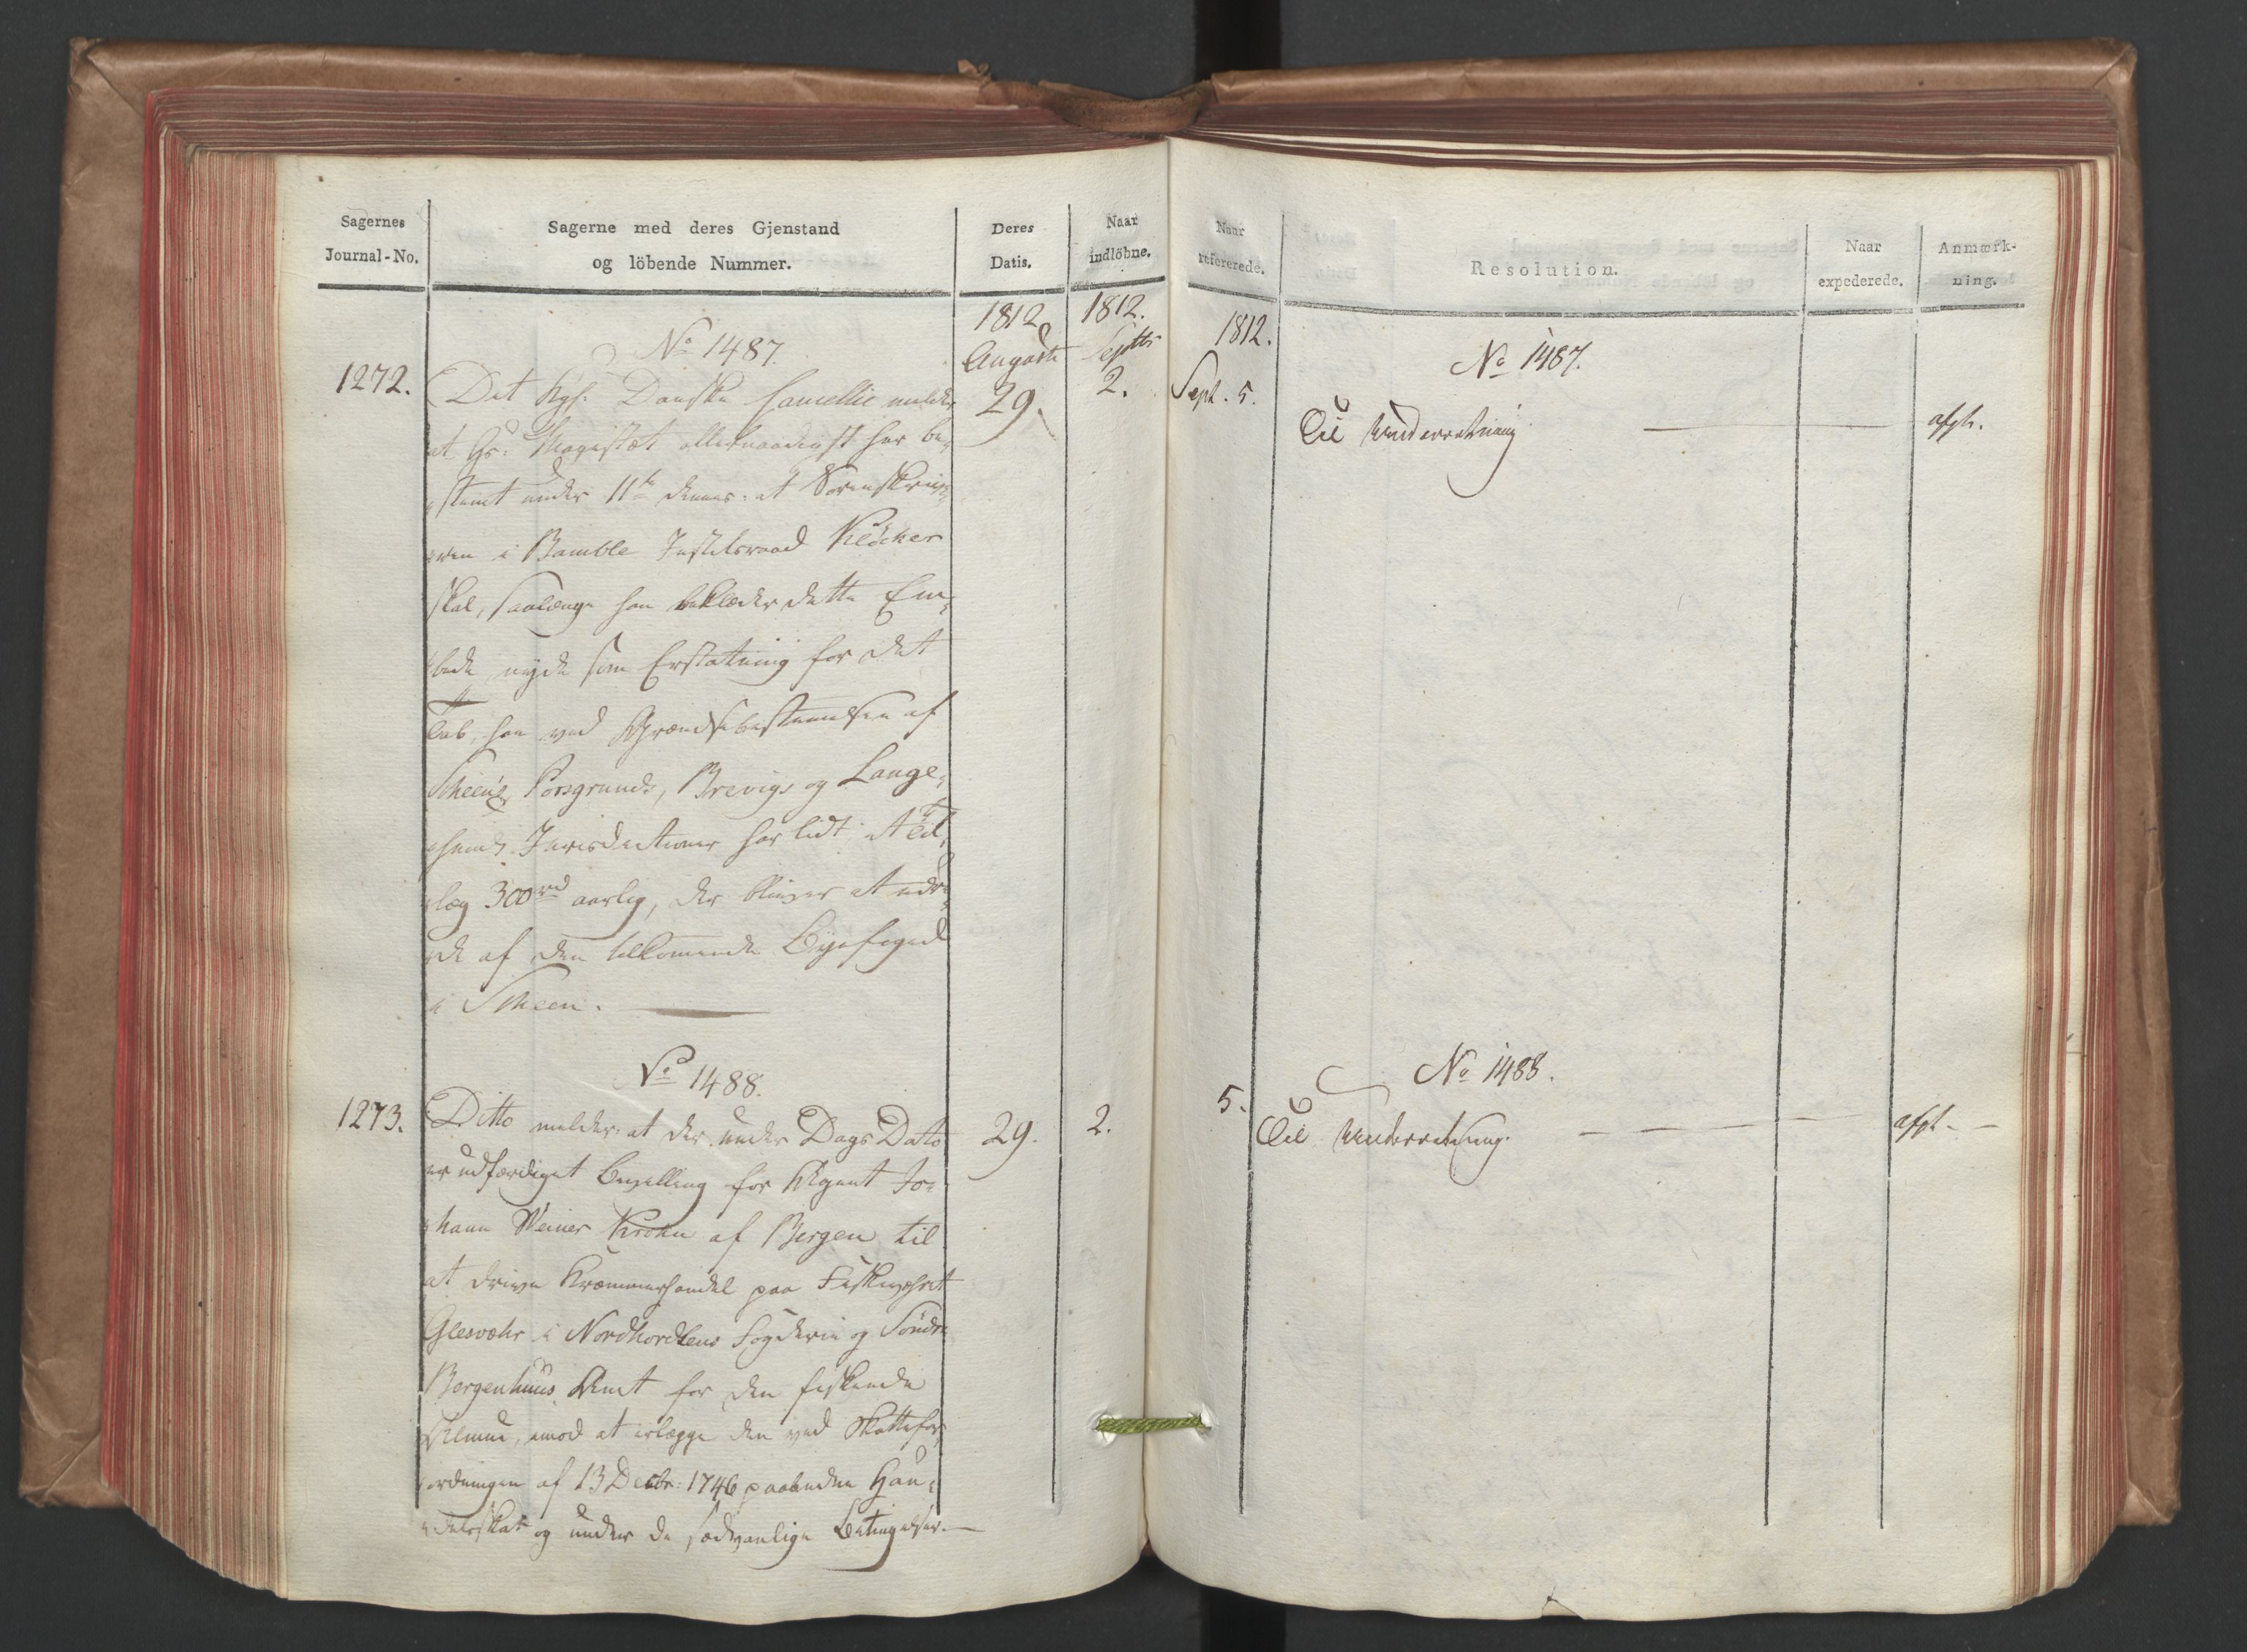 Sagernes
Journal-No.
Sagerne med deres Gjenstand
og löbende Nummer.
Deres
Datis.
Naar
indlöbne.
1812
1812.
Auguste
Septbr
No 1487.
1272.
29.
2.
Det Kgl: Danske Cancellie melder
at Hs: Majestæt allernaadigst har be-
stemt under 11te dennes: at Sorenskriv-
eren i Bamble Justitsraad Klöcker
skal, saalænge han beklæder dette Em-
bede nyde som Erstatning for det
Tab, han ved Grændsebestemmelsen af
Scheens, Porsgrunds, Brevigs og Lange-
sunds Jurisdictioner har lidt et Til-
læg 300 rd aarlig, der bliver at udre-
de af den tilkomende Byefoged
i Scheen.
No 1488.
1273.
29.
2.
Ditto melder: at der under Dags Dato
er udfærdiget Bevilling for Agent Jo-
hann Weiner Krohn af Bergen til
at drive Kræmmerhandel paa
Glesvæhr i Nordhordlens Fogderie og Söndre
Bergenhuus Amt for den fiskende
Almue, imod at erlægge den ved Skattefor-
ordningen af 13 Decbr: 1746 paabudne Han-
delsskat og under de sædvanlige Betingelser.
Naar
refererede.
Resolution.
Naar
expederede.
Anmærk-
ning.
1812.
Sept. 5.
No 1487.
Til Underretning
afgh.
No 1488.
5.
Til Underretning.
afgh.